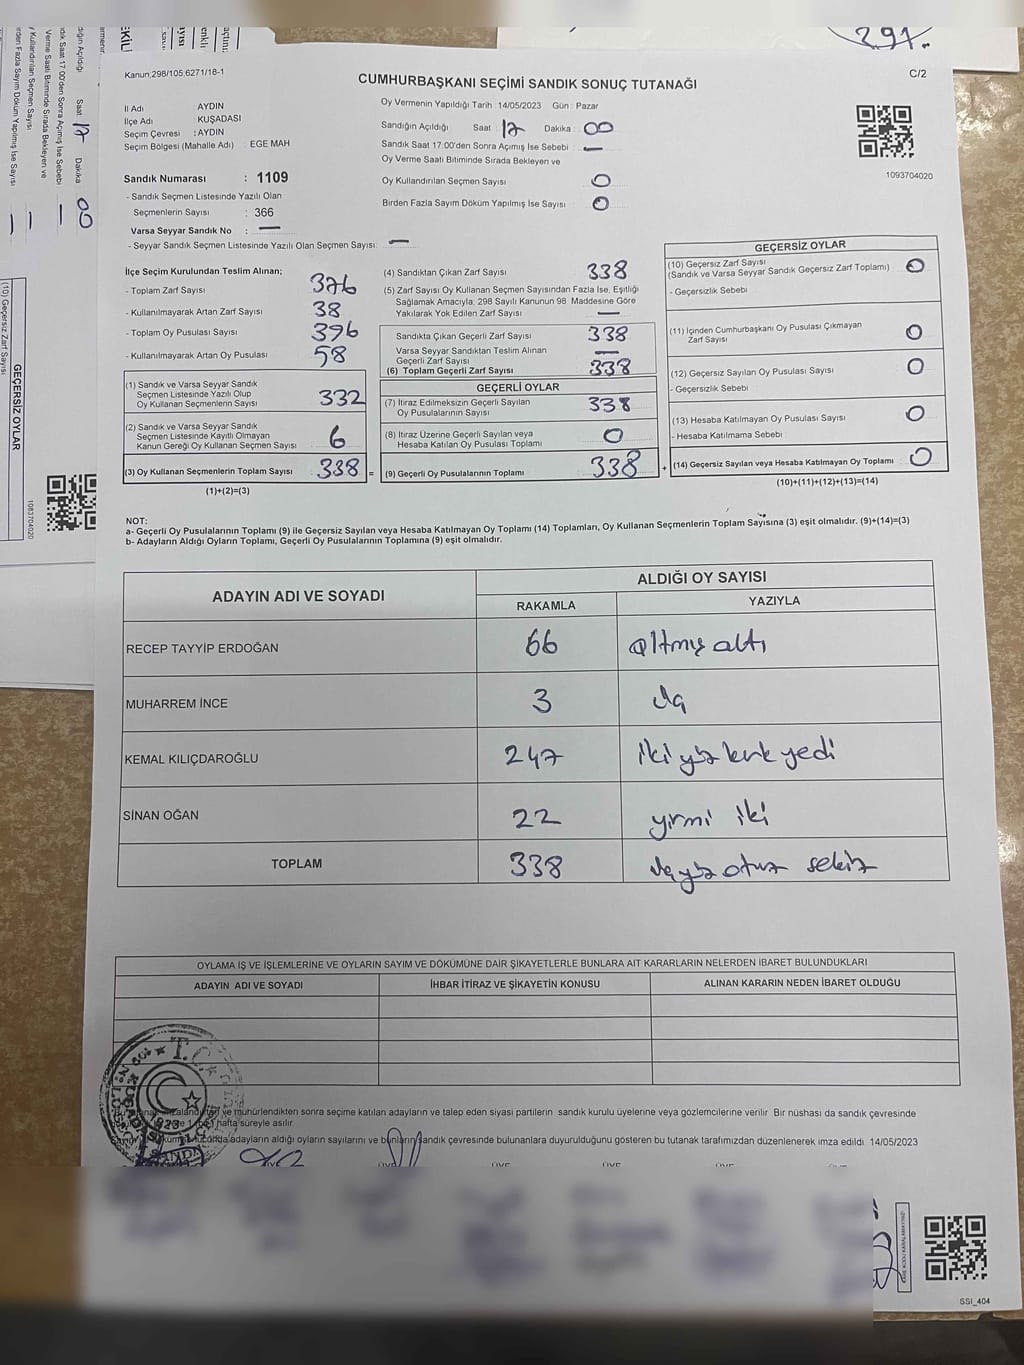 391.
Kanun,298/105,6271/18-1
CUMHURBAŞKANI SEÇİMİ SANDIK SONUÇ TUTANAĞI
C/2
İl Adı AYDIN
İlçe Adı KUŞADASI
Seçim Çevresi : AYDIN
Seçim Bölgesi (Mahalle Adı) EGE MAH
Oy Vermenin Yapıldığı Tarih : 14/05/2023 Gün : Pazar
Sandığın Açıldığı Saat : 17 Dakika : 00
Sandık Saat 17:00'den Sonra Açımış İse Sebebi : —
Oy Verme Saati Bitiminde Sırada Bekleyen ve
Oy Kullandırılan Seçmen Sayısı : 0
Birden Fazla Sayım Döküm Yapılmış İse Sayısı : 0
1093704020
Sandık Numarası : 1109
- Sandık Seçmen Listesinde Yazılı Olan
Seçmenlerin Sayısı : 366
Varsa Seyyar Sandık No : —
- Seyyar Sandık Seçmen Listesinde Yazılı Olan Seçmen Sayısı: —
İlçe Seçim Kurulundan Teslim Alınan;
- Toplam Zarf Sayısı : 376
- Kullanılmayarak Artan Zarf Sayısı : 38
- Toplam Oy Pusulası Sayısı : 396
- Kullanılmayarak Artan Oy Pusulası : 58
(1) Sandık ve Varsa Seyyar Sandık
Seçmen Listesinde Yazılı Olup
Oy Kullanan Seçmenlerin Sayısı : 332
(2) Sandık ve Varsa Seyyar Sandık
Seçmen Listesinde Kayıtlı Olmayan
Kanun Gereği Oy Kullanan Seçmen Sayısı : 6
(3) Oy Kullanan Seçmenlerin Toplam Sayısı : 338 =
(1)+(2)=(3)
(4) Sandıktan Çıkan Zarf Sayısı : 338
(5) Zarf Sayısı Oy Kullanan Seçmen Sayısından Fazla İse, Eşitliği
Sağlamak Amacıyla; 298 Sayılı Kanunun 98. Maddesine Göre
Yakılarak Yok Edilen Zarf Sayısı : —
Sandıkta Çıkan Geçerli Zarf Sayısı : 338
Varsa Seyyar Sandıktan Teslim Alınan
Geçerli Zarf Sayısı : —
(6) Toplam Geçerli Zarf Sayısı : 338
GEÇERLİ OYLAR
(7) İtiraz Edilmeksizin Geçerli Sayılan
Oy Pusulalarının Sayısı : 338
(8) İtiraz Üzerine Geçerli Sayılan veya
Hesaba Katılan Oy Pusulası Toplamı : 0
(9) Geçerli Oy Pusulalarının Toplamı : 338 +
GEÇERSİZ OYLAR
(10) Geçersiz Zarf Sayısı : 0
(Sandık ve Varsa Seyyar Sandık Geçersiz Zarf Toplamı)
- Geçersizlik Sebebi :
(11) İçinden Cumhurbaşkanı Oy Pusulası Çıkmayan
Zarf Sayısı : 0
(12) Geçersiz Sayılan Oy Pusulası Sayısı : 0
- Geçersizlik Sebebi :
(13) Hesaba Katılmayan Oy Pusulası Sayısı : 0
- Hesaba Katılmama Sebebi :
(14) Geçersiz Sayılan veya Hesaba Katılmayan Oy Toplamı : 0
(10)+(11)+(12)+(13)=(14)
NOT:
a- Geçerli Oy Pusulalarının Toplamı (9) ile Geçersiz Sayılan veya Hesaba Katılmayan Oy Toplamı (14) Toplamları, Oy Kullanan Seçmenlerin Toplam Sayısına (3) eşit olmalıdır. (9)+(14)=(3)
b- Adayların Aldığı Oyların Toplamı, Geçerli Oy Pusulalarının Toplamına (9) eşit olmalıdır.
ADAYIN ADI VE SOYADI ALDIĞI OY SAYISI
RAKAMLA YAZIYLA
RECEP TAYYİP ERDOĞAN 66 altmış altı
MUHARREM İNCE 3 üç
KEMAL KILIÇDAROĞLU 247 iki yüz kırk yedi
SİNAN OĞAN 22 yirmi iki
TOPLAM 338 üçyüz otuz sekiz
OYLAMA İŞ VE İŞLEMLERİNE VE OYLARIN SAYIM VE DÖKÜMÜNE DAİR ŞİKAYETLERLE BUNLARA AİT KARARLARIN NELERDEN İBARET BULUNDUKLARI
ADAYIN ADI VE SOYADI İHBAR İTİRAZ VE ŞİKAYETİN KONUSU ALINAN KARARIN NEDEN İBARET OLDUĞU
T.C.
ve mühürlendikten sonra seçime katılan adayların ve talep eden siyasi partilerin sandık kurulu üyelerine veya gözlemcilerine verilir. Bir nüshası da sandık çevresinde
hafta süreyle asılır.
adayların aldığı oyların sayılarını ve bunların sandık çevresinde bulunanlara duyurulduğunu gösteren bu tutanak tarafımızdan düzenlenerek imza edildi. 14/05/2023
ÜYE ÜYE ÜYE ÜYE
SSI_404
Saat 17 Dakika 00
GEÇERSİZ OYLAR
(10) Geçersiz Zarf Sayısı
1083704020